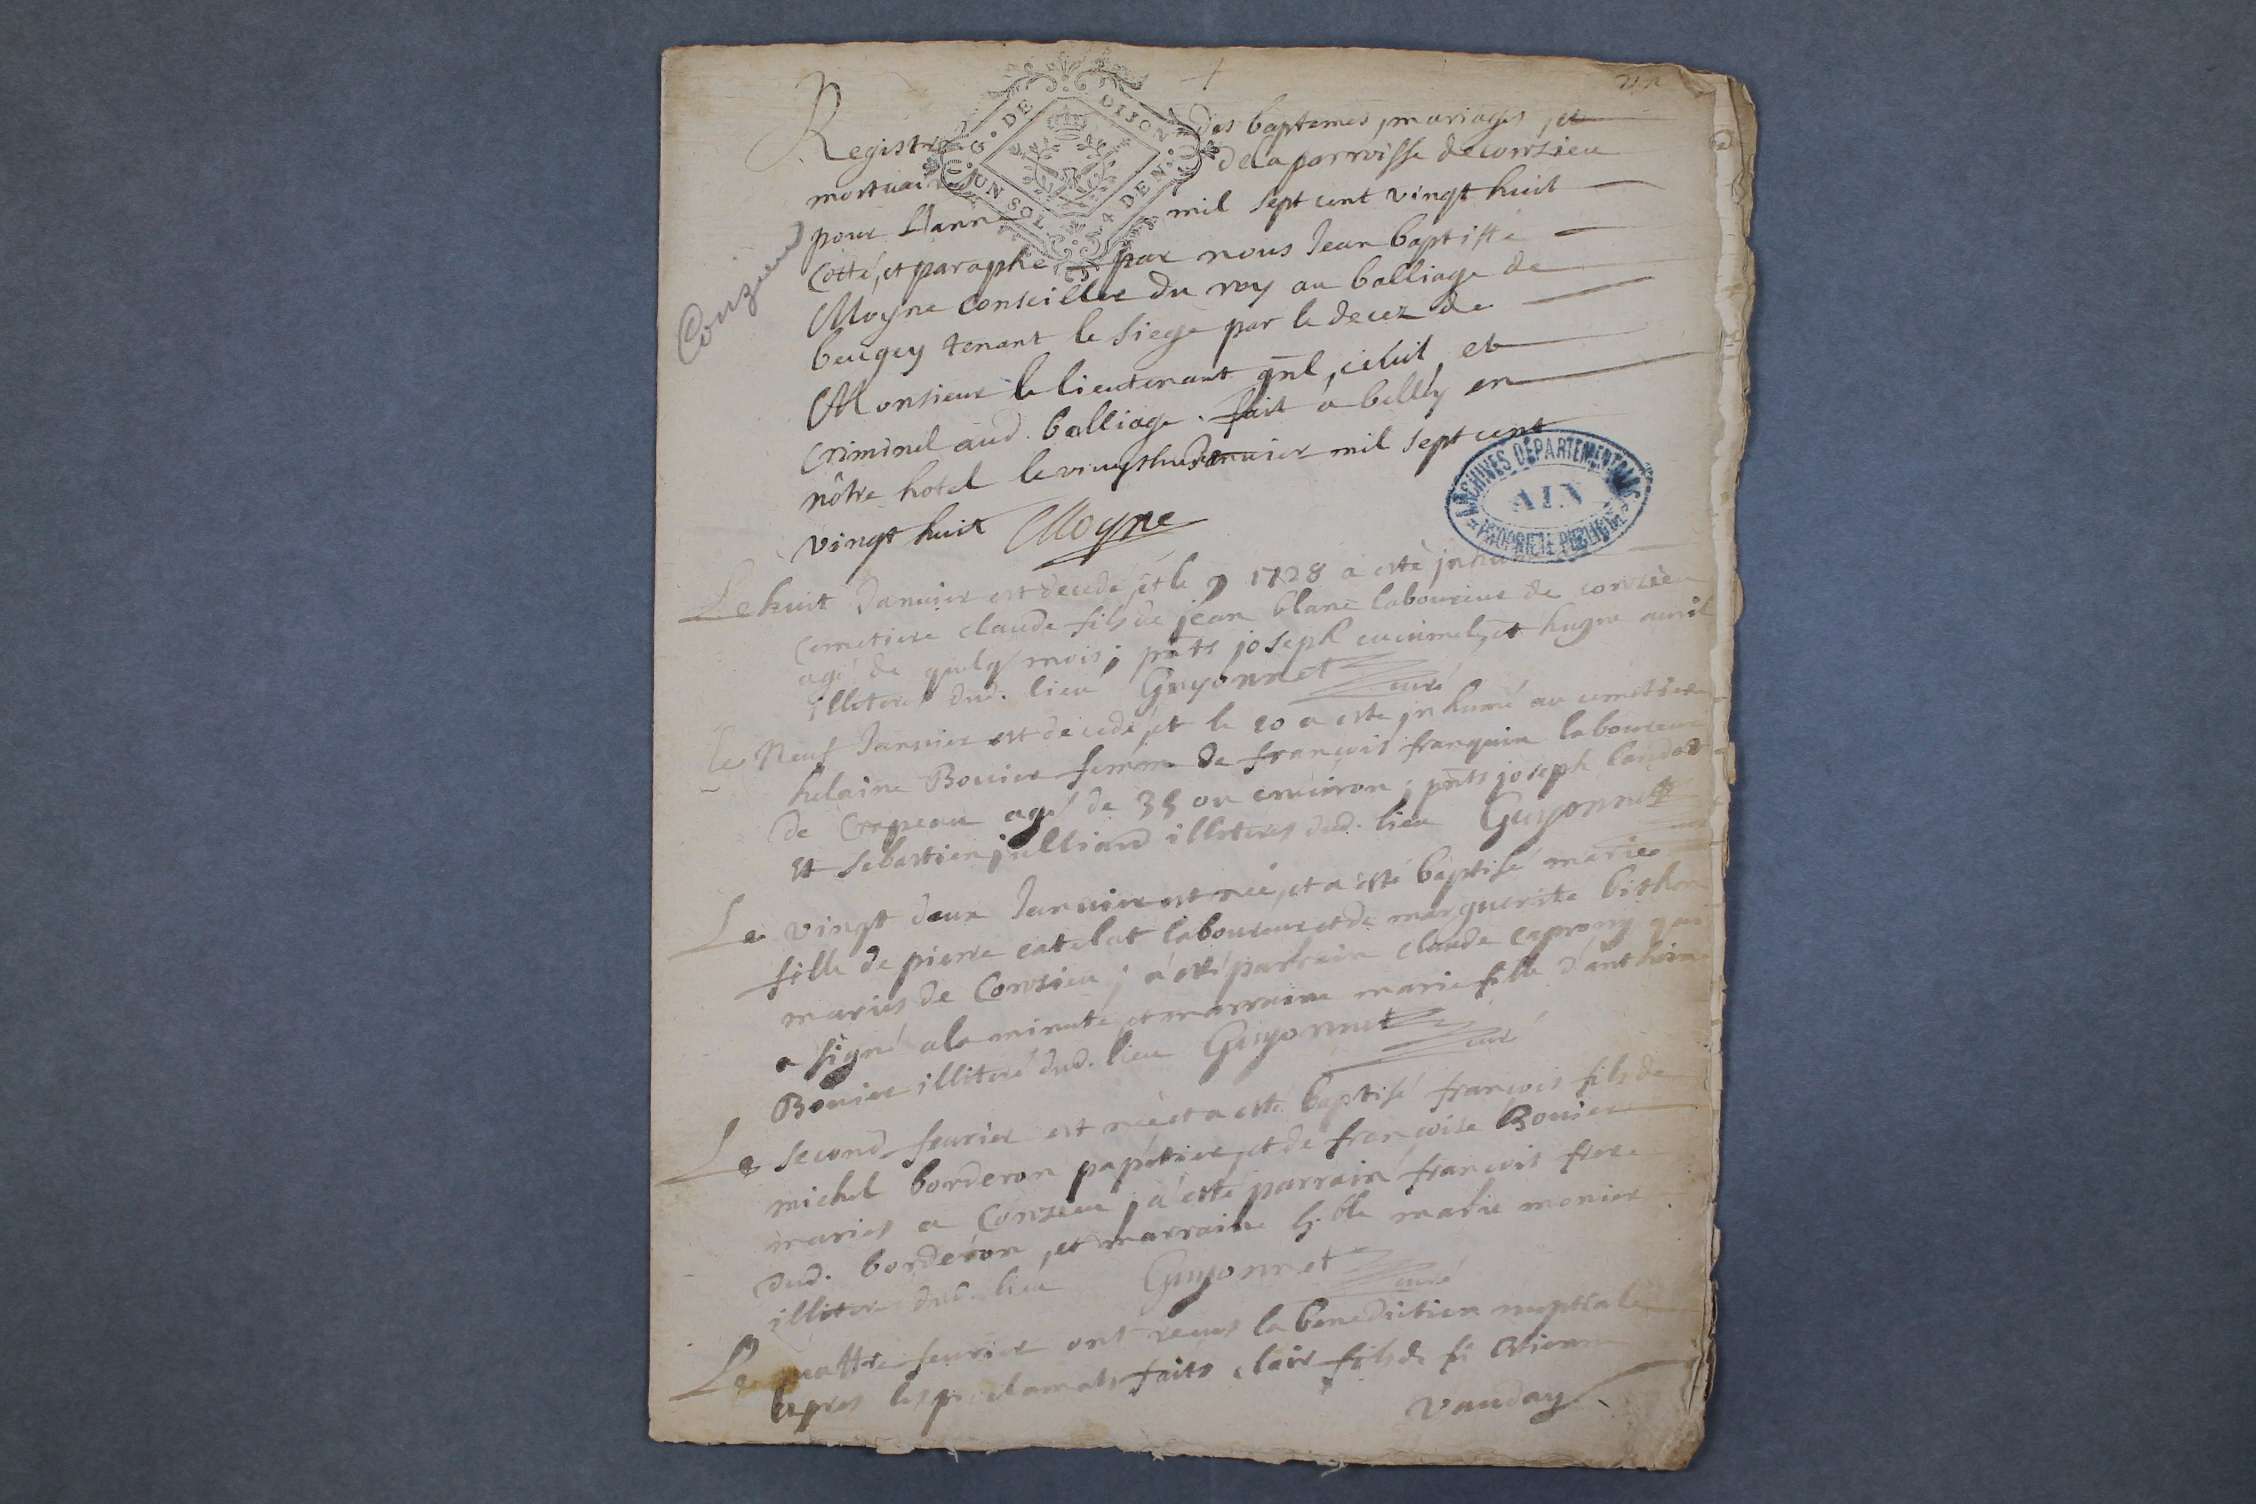 Registre des baptemes, mariages, et
G. DE DIJON
UN SOL 4 DEN.
mortuaires de la parroisse de conzieu
pour Lannée mil sept cent vingt huit
Conzieu
Cotté, et paraphé par nous Jean baptiste
Moyne conseiller du roy au balliage de
beugey tenant le siege par le decez de
Monsieur le lieutenant gnl, civil, et
criminel aud. balliage. fait a belley en
nôtre hotel le vingt huit Janvier mil sept cent
vingt huit Moyne
ARCHIVES DÉPARTEMENTALES
AIN
PROPRIÉTÉ PUBLIQUE
Le huit Janvier est decedé, et le 9 1728 a esté inhumé
cemetiere claude fils de jean blanc laboureur de conzieu
agé de quelq mois; pnts joseph et hugue
illiteres dud. lieu Guyonnet curé
Le Neuf Janvier est decedé, et le 10 a esté inhumé au cemetiere
helaine Bouier femme de françois franquin laboureur
de Crapeau agé de 35 ou environ; pnts joseph
et sebastien julliand illiteres dud. lieu Guyonnet
Le vingt deux Janvier est née, et a esté baptisé marie
fille de pierre catelat laboureur et de marguerite
mariés de Conzieu; a esté parrain claude caprony qui
a signé a la minute, et marraine marie fille d'anthoine
Bouier illiteré dud. lieu Guyonnet curé
Le second feurier est né et a esté baptisé françois fils de
michel borderon papetier, et de françoise Bouier
mariés a Conzieu, a esté parrain françois frere
dud. borderon, et marraine h.ble marie monier
illiteres dud. lieu Guyonnet curé
Le quattre feurier ont receus la benediction nuptiale
apres les proclamats faits clair fils de Estienne
vauday